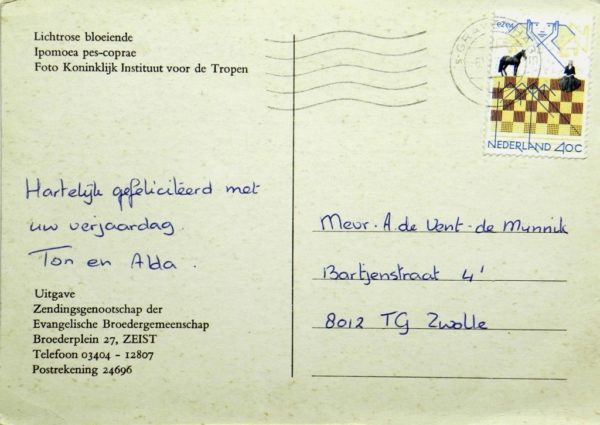 Lichtrose bloeiende
Ipomoea pes-coprae
Foto Koninklijk Instituut voor de Tropen
NEDERLAND 40C
Hartelijk gefeliciteerd met
uw verjaardag.
Ton en Alda.
Mevr. A. de Vent-de Munnik
Bartjenstraat 4'
8012 TG Zwolle
Uitgave
Zendingsgenootschap der
Evangelische Broedergemeenschap
Broederplein 27, ZEIST
Telefoon 03404 - 12807
Postrekening 24696